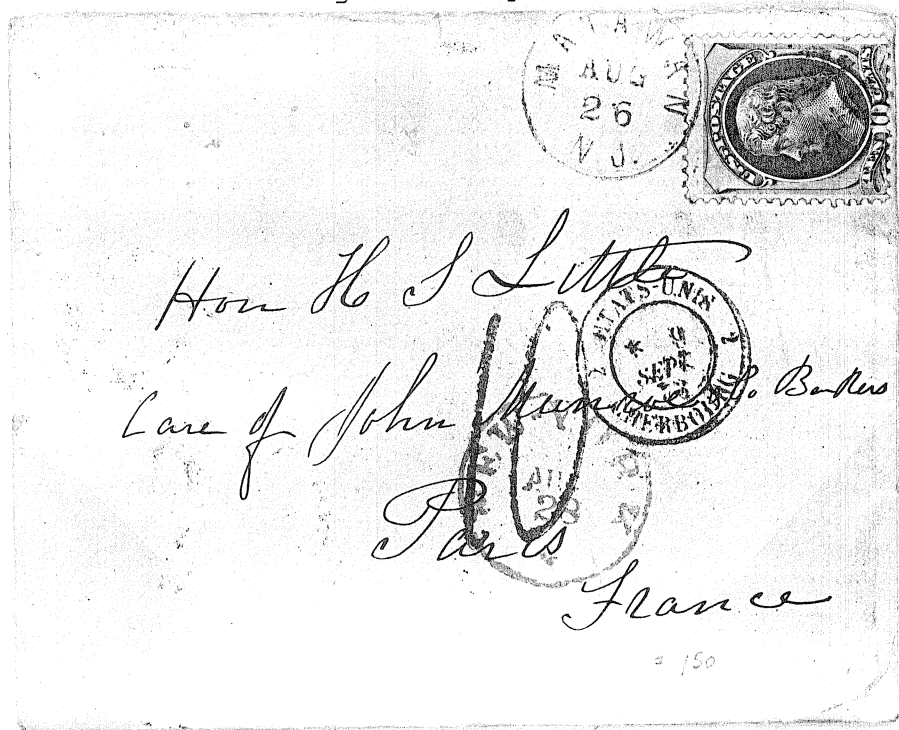 MATAWAN
AUG
26
N.J.
U.S. POSTAGE
Hon H S Little
ETATS-UNIS
2 2
SEPT
CHERBOURG
10
Care of John Munroe Co Bankers
NEW YORK
AUG
28
Paris
France
150